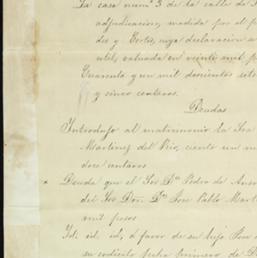 La casa num.º 3 de la calle de
adjudicacion, medida por el
dez y Cortés, cuya declaracion
util, valuada en veinte mil
Cuarenta y un mil doscientos sete
y cinco centavos.
Deudas
Introdujo al matrimonio la Sra
Martinez del Rio, ciento un m
doce centavos
Deuda que el Sor Dn Pedro de Anso
del Sor Don Dn José Pablo Mart
mil pesos
Id. id. id. á favor de su hijo Don
su codicilo fecha primero de D